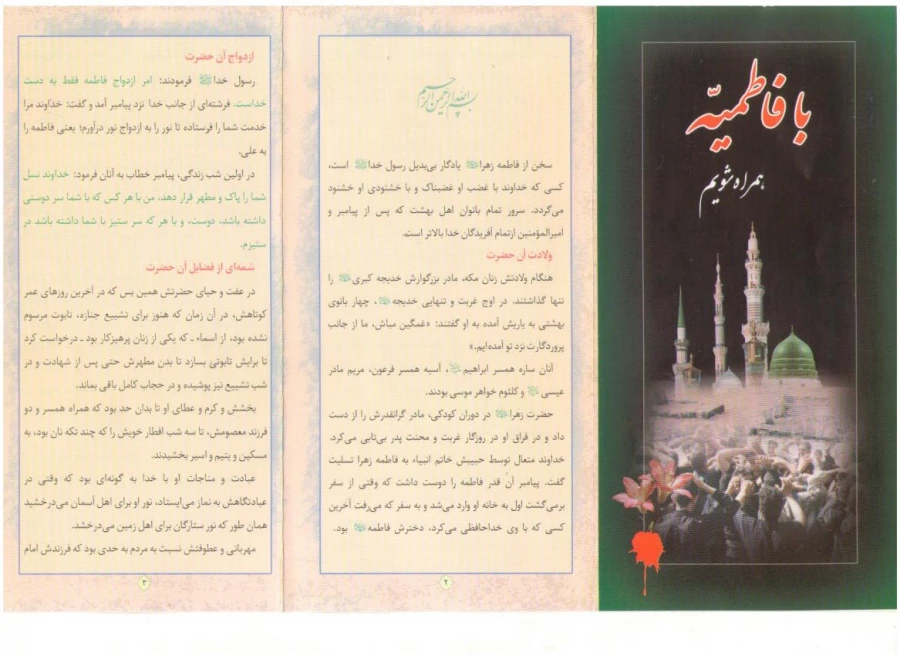 با فاطمیّه
همراه شویم
بسم الله الرحمن الرحیم
سخن از فاطمه زهرا یادگار بی‌بدیل رسول خدا ﷺ است،
کسی که خداوند با غضب او غضبناک و با خشنودی او خشنود
می‌گردد. سرور تمام بانوان اهل بهشت که پس از پیامبر و
امیرالمؤمنین ازتمام آفریدگان خدا بالاتر است.
ولادت آن حضرت
هنگام ولادتش زنان مکه، مادر بزرگوارش خدیجه کبری را
تنها گذاشتند. در اوج غربت و تنهایی خدیجه ، چهار بانوی
بهشتی به یاریش آمده به او گفتند: «غمگین مباش، ما از جانب
پروردگارت نزد تو آمده‌ایم.»
آنان ساره همسر ابراهیم ، آسیه همسر فرعون، مریم مادر
عیسی و کلثوم خواهر موسی بودند.
حضرت زهرا در دوران کودکی، مادر گرانقدرش را از دست
داد و در فراق او در روزگار غربت و محنت پدر بی‌تابی می‌کرد.
خداوند متعال توسط حبیبش خاتم انبیاء به فاطمه زهرا تسلیت
گفت. پیامبر آن قدر فاطمه را دوست داشت که وقتی از سفر
برمی‌گشت اول به خانه او وارد می‌شد و به سفر که می‌رفت آخرین
کسی که با وی خداحافظی می‌کرد، دخترش فاطمه بود.
۲
ازدواج آن حضرت
رسول خدا ﷺ فرمودند: امر ازدواج فاطمه فقط به دست
خداست، فرشته‌ای از جانب خدا نزد پیامبر آمد و گفت: خداوند مرا
خدمت شما را فرستاده تا نور را به ازدواج نور درآورم؛ یعنی فاطمه را
به علی.
در اولین شب زندگی، پیامبر خطاب به آنان فرمود: خداوند نسل
شما را پاک و مطهر قرار دهد، من با هر کس که با شما سر دوستی
داشته باشد، دوست، و با هر که سر ستیز با شما داشته باشد در
ستیزم.
شمه‌ای از فضایل آن حضرت
در عفت و حیای حضرتش همین بس که در آخرین روزهای عمر
کوتاهش، در آن زمان که هنوز برای تشییع جنازه، تابوت مرسوم
نشده بود، از اسماء ـ که یکی از زنان پرهیزکار بود ـ درخواست کرد
تا برایش تابوتی بسازد تا بدن مطهرش حتی پس از شهادت و در
شب تشییع نیز پوشیده و در حجاب کامل باقی بماند.
بخشش و کرم و عطای او تا بدان حد بود که همراه همسر و دو
فرزند معصومش، تا سه شب افطار خویش را که چند تکه نان بود، به
مسکین و یتیم و اسیر بخشیدند.
عبادت و مناجات او با خدا به گونه‌ای بود که وقتی در
عبادتگاهش به نماز می‌ایستاد، نور او برای اهل آسمان می‌درخشید
همان طور که نور ستارگان برای اهل زمین می‌درخشد.
مهربانی و عطوفتش نسبت به مردم به حدی بود که فرزندش امام
۳